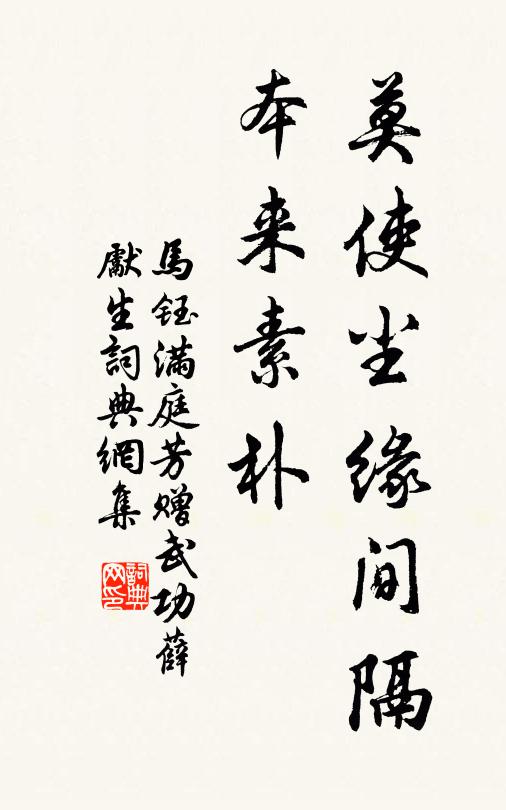 莫使尘缘间隔
本来素朴
馬鈺滿庭芳赠武功薛
獻生詞典網集
詞典网印